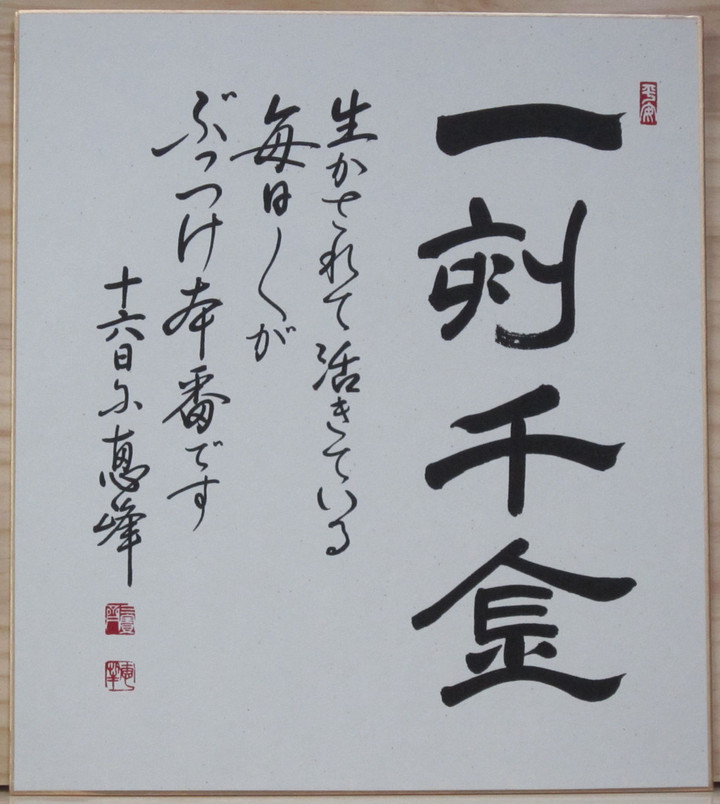 一刻千金
生かされて活きている
毎日〳〵が
ぶっつけ本番です
十六日に 恵峰